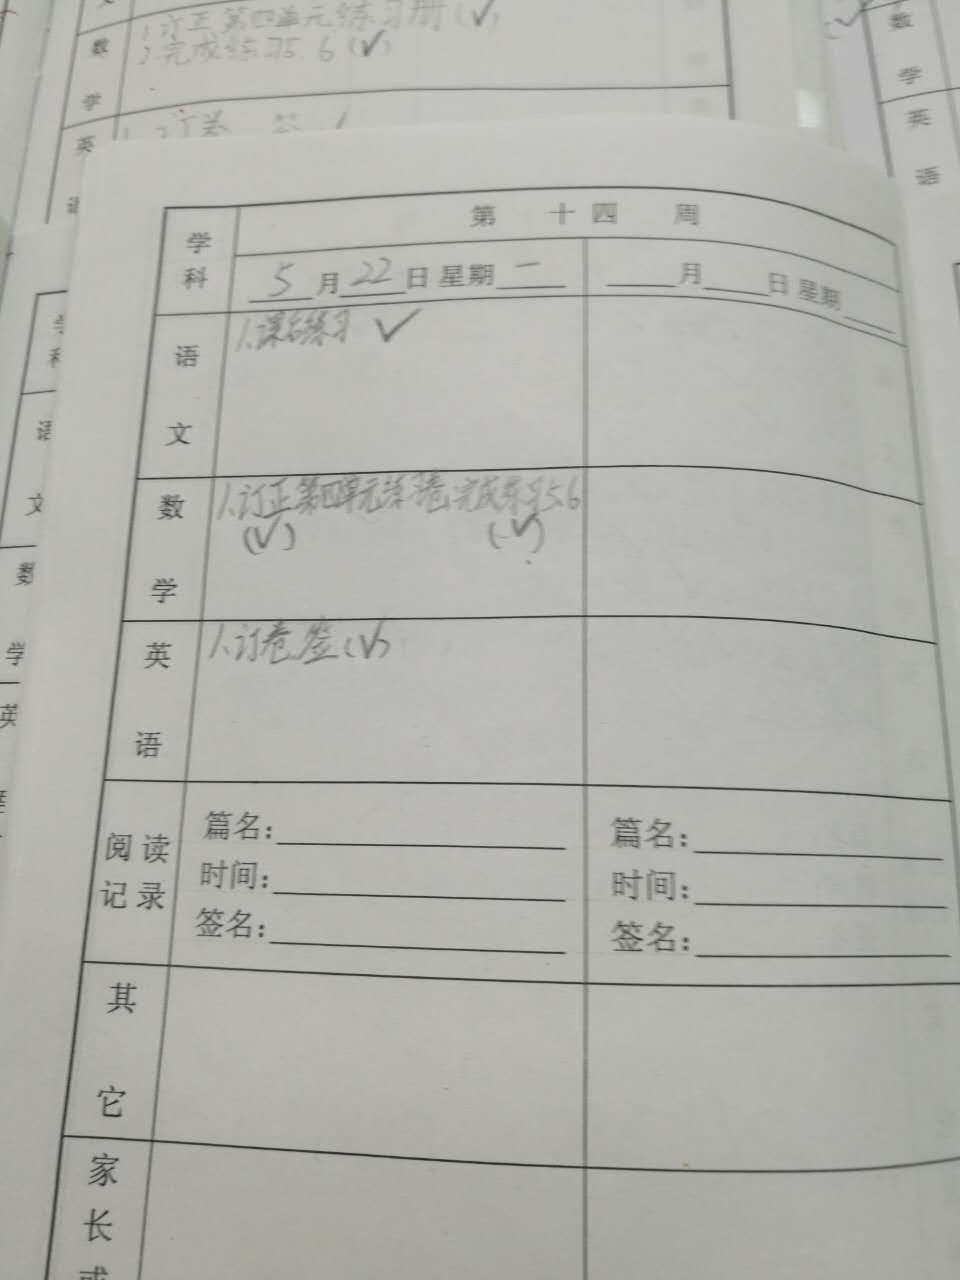 数
学
1.订正第四单元练习册(✓)
2.完成练习5.6(✓)
英
数
学
英
语
第 十 四 周
学
科
5月22日 星期一
月 日 星期
语
文
1.课后练习 ✓
数
学
1.订正第四单元练习卷,完成练习5.6
(✓) (✓)
英
语
1.订卷,签(✓)
阅 读
记 录
篇名:
时间:
签名:
篇名:
时间:
签名:
其
它
家
长
语
文
数
学
英